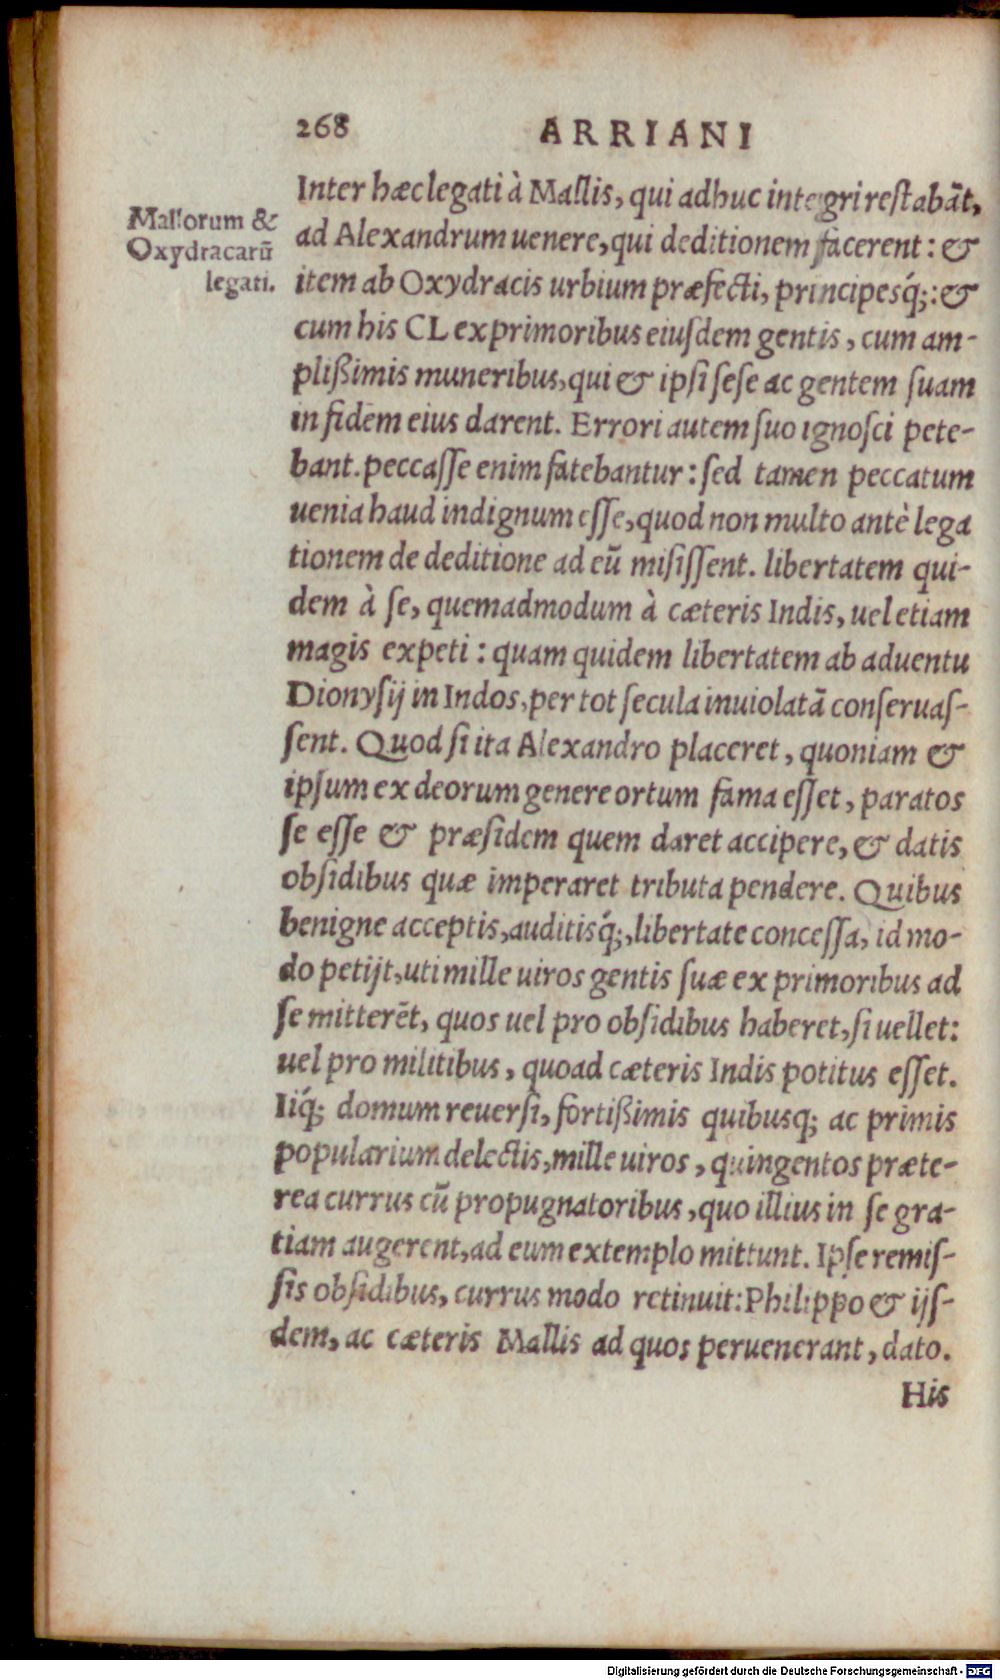 268 ARRIANI
Mallorum &
Oxydracarū
legati.
Inter hæc legati à Mallis, qui adhuc integri restabāt,
ad Alexandrum uenere, qui deditionem facerent: &
item ab Oxydracis urbium præfecti, principesq́;: &
cum his CL ex primoribus eiusdem gentis, cum am-
plißimis muneribus, qui & ipsi sese ac gentem suam
in fidem eius darent. Errori autem suo ignosci pete-
bant. peccasse enim fatebantur: sed tamen peccatum
uenia haud indignum esse, quod non multo antè lega
tionem de deditione ad eū misissent. libertatem qui-
dem à se, quemadmodum à cæteris Indis, uel etiam
magis expeti: quam quidem libertatem ab aduentu
Dionysij in Indos, per tot secula inuiolatā conseruas-
sent. Quod si ita Alexandro placeret, quoniam &
ipsum ex deorum genere ortum fama esset, paratos
se esse & præsidem quem daret accipere, & datis
obsidibus quæ imperaret tributa pendere. Quibus
benigne acceptis, auditisq́;, libertate concessa, id mo-
do petijt, uti mille uiros gentis suæ ex primoribus ad
se mitterēt, quos uel pro obsidibus haberet, si uellet:
uel pro militibus, quoad cæteris Indis potitus esset.
Iiq́; domum reuersi, fortißimis quibusq; ac primis
popularium delectis, mille uiros, quingentos præte-
rea currus cū propugnatoribus, quo illius in se gra-
tiam augerent, ad eum extemplo mittunt. Ipse remis-
sis obsidibus, currus modo retinuit: Philippo & ijs-
dem, ac cæteris Mallis ad quos peruenerant, dato.
His
Digitalisierung gefördert durch die Deutsche Forschungsgemeinschaft - DFG